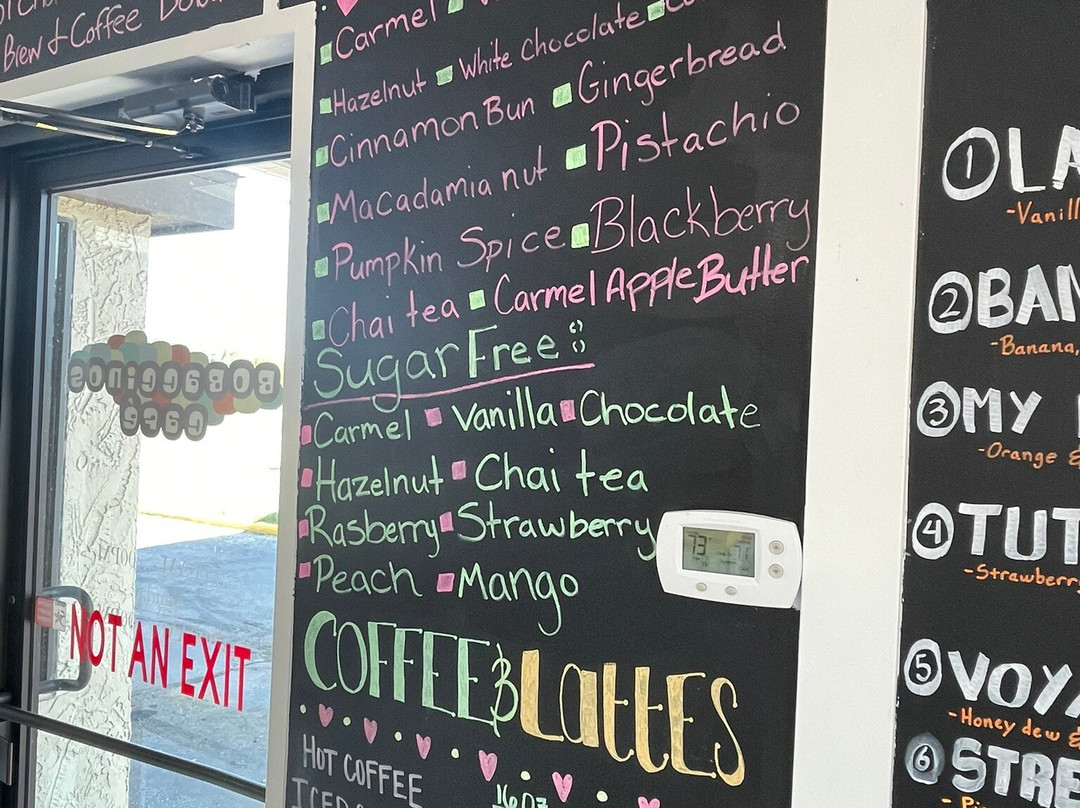 Brew & Coffee
Carmel
Hazelnut White Chocolate
Cinnamon Bun Gingerbread
Macadamia nut Pistachio
Pumpkin Spice Blackberry
Chai tea Carmel Apple Butter
Sugar Free:
Carmel Vanilla Chocolate
Hazelnut Chai tea
Rasberry Strawberry
Peach Mango
COFFEE & LattES
HOT COFFEE
ICED
16oz
73
77
BOBACCINOS
CAFE
NOT AN EXIT
1 LA
-Vanill
2 BAN
-Banana,
3 MY
-Orange &
4 TUT
-Strawberry
5 VOYA
-Honey dew &
6 STRE